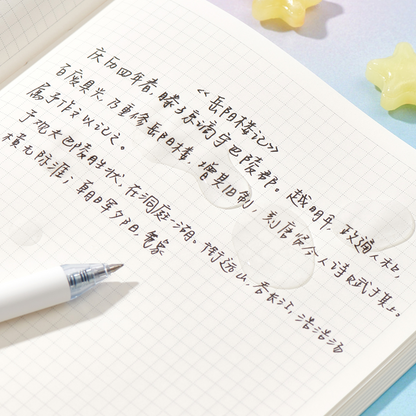 《岳阳楼记》
庆历四年春，滕子京谪守巴陵郡。越明年，政通人和，
百废具兴，乃重修岳阳楼，增其旧制，刻唐贤今人诗赋于其上。
属予作文以记之。
予观夫巴陵胜状，在洞庭一湖。衔远山，吞长江，浩浩汤
横无际涯；朝晖夕阴 气象